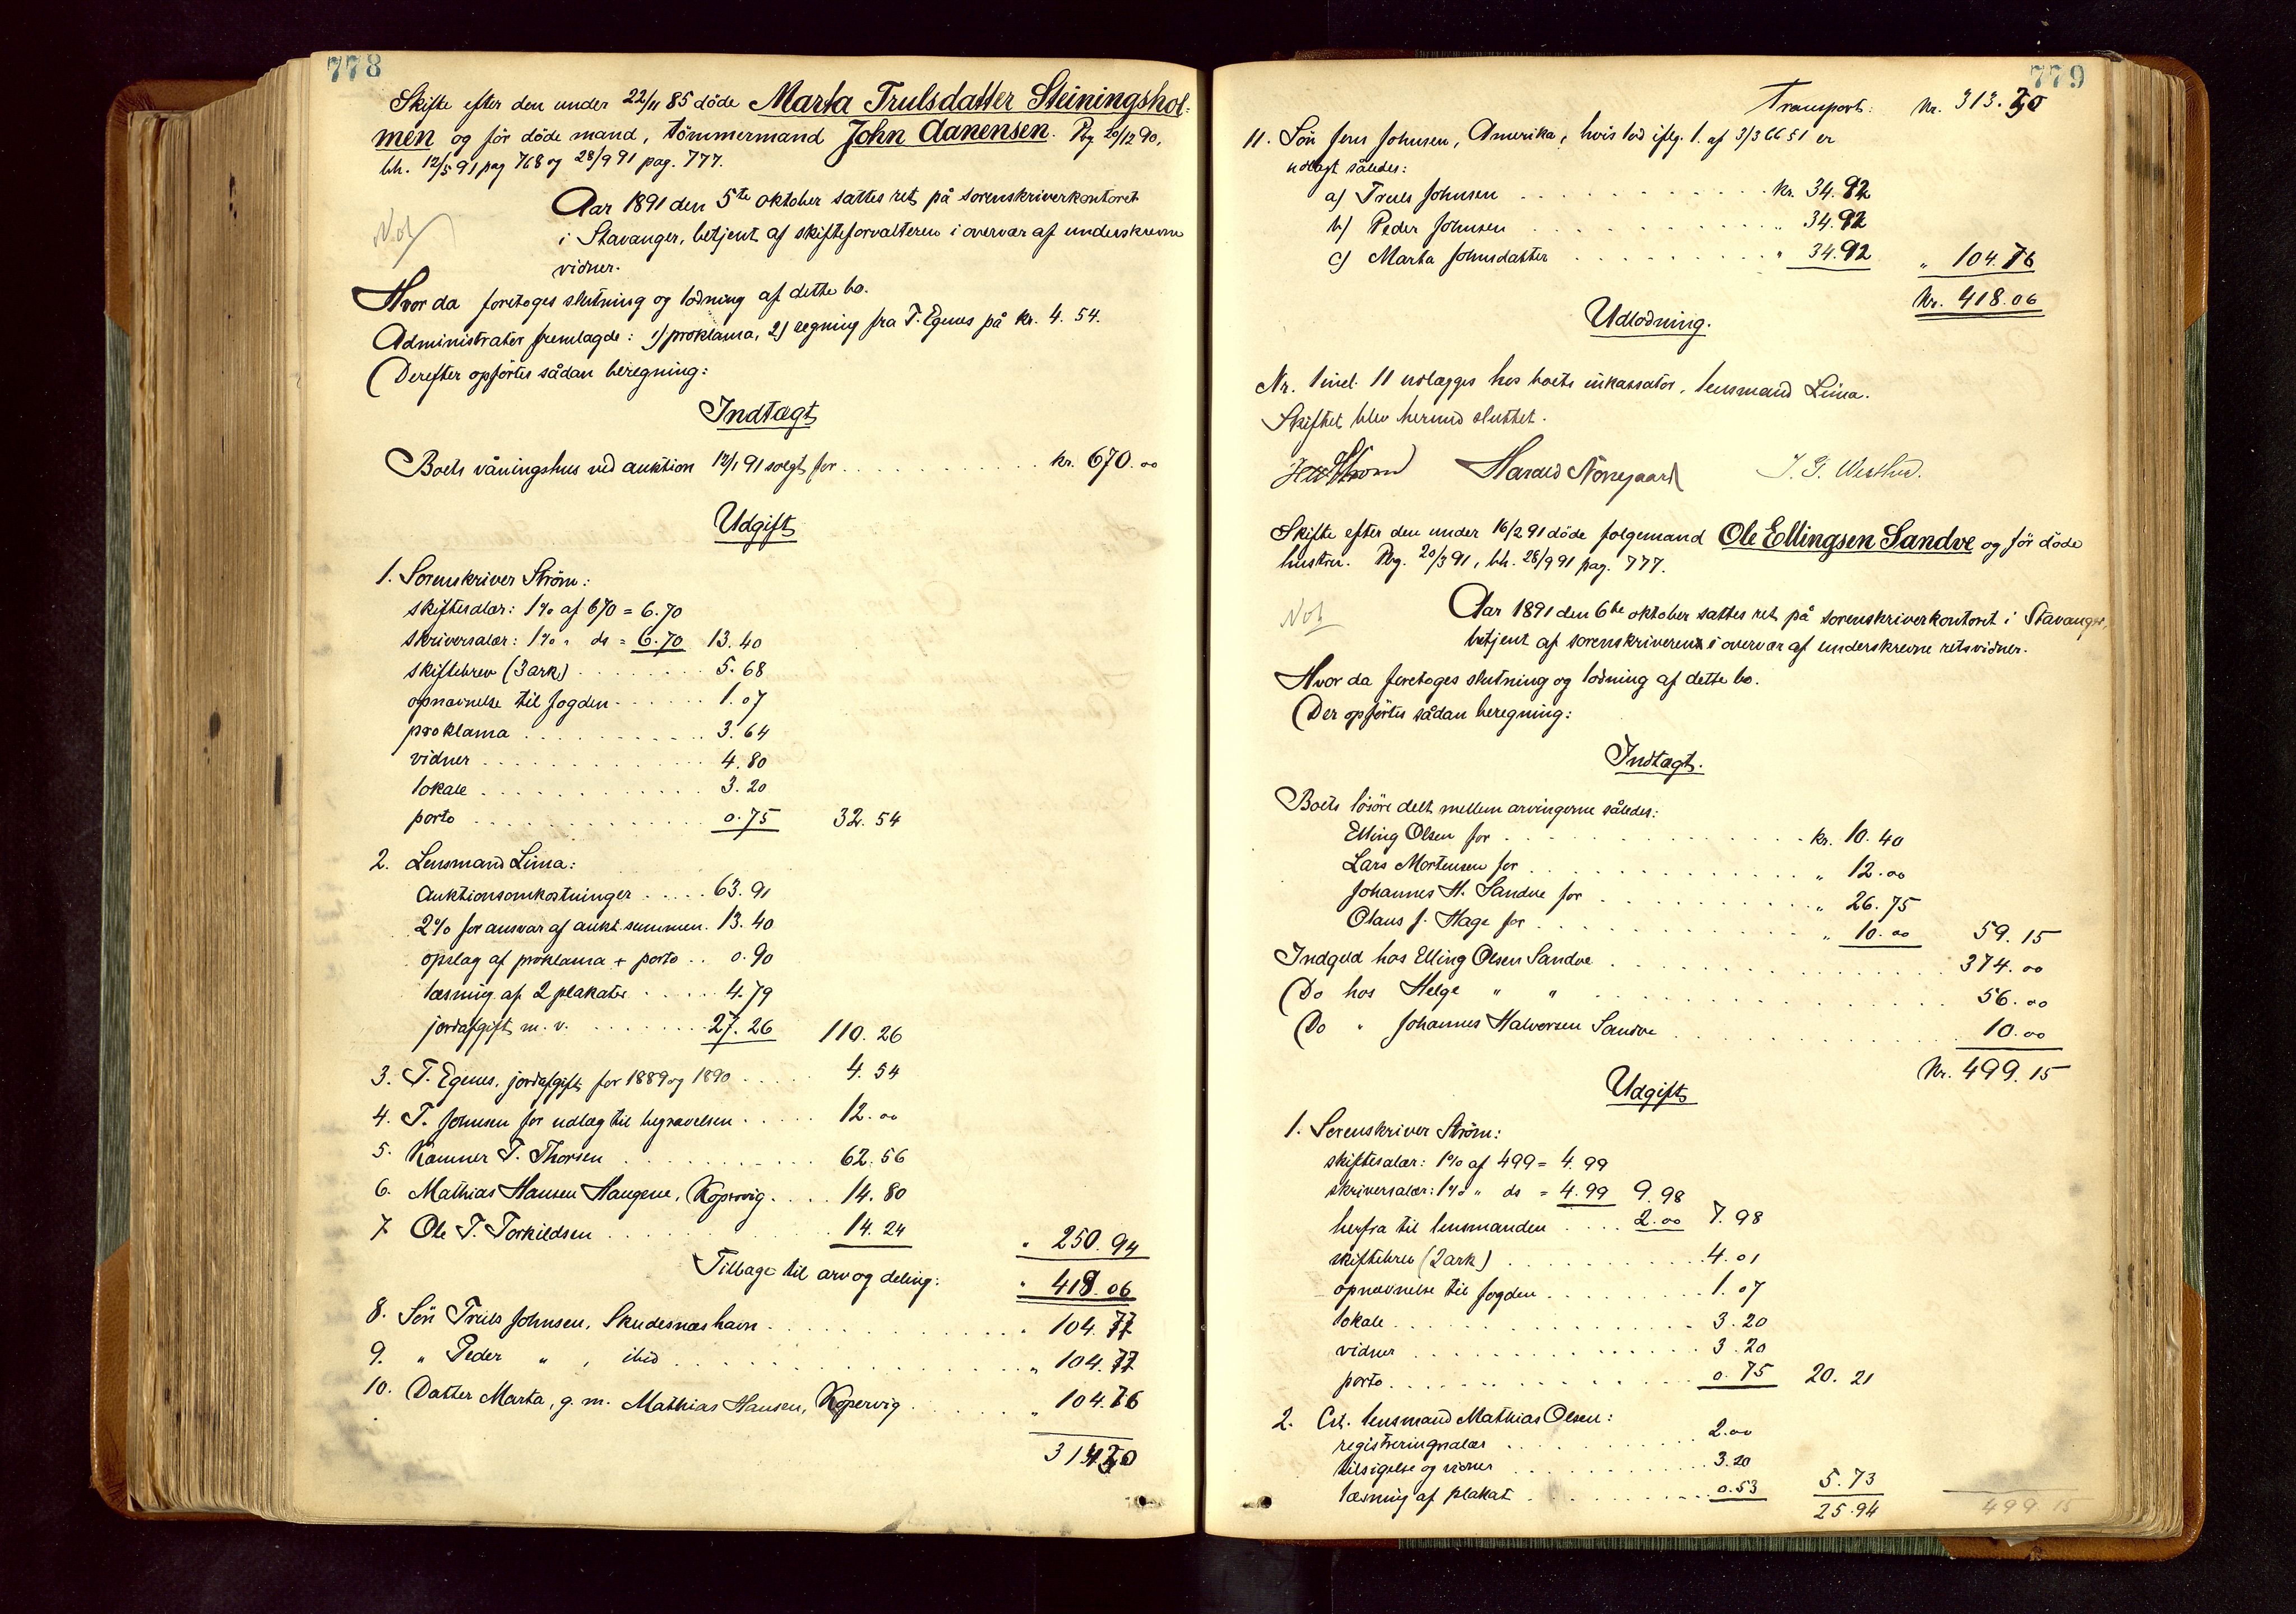 778
Skifte efter den under 22/11 85 döde Marta Trulsdatter Steiningshol-
men og för döde mand, tömmermand John Aanensen. Rbg 20/12 90,
bh. 12/5 91 pag 768 og 28/9 91 pag. 777.
Not
Aar 1891 den 5te oktober sattes ret på sorenskriverkontoret
i Stavanger, betjent af skifteforvalteren i overvær af underskrevne
vidner.
Hvor da foretoges slutning og lodning af dette bo.
Administrator fremlagde: 1) proklama, 2) regning fra T. Egenes på kr. 4.54.
Derefter opförtes sådan beregning:
Indtægt
Boets våningshus ved auktion 12/1 91 solgt for . . . kr. 670.00
Udgift
1. Sorenskriver Ström:
skiftesalær: 1% af 670 = 6.70
skriversalær: 1% " do = 6.70 13.40
skiftebrev (3 ark) . . . 5.68
opnævnelse til fogden . . . 1.07
proklama . . . 3.64
vidner . . . 4.80
lokale . . . 3.20
porto . . . 0.75 32.54
2. Lensmand Lima:
Auktionsomkostninger . . . 63.91
2% for ansvar af aukt.summen. 13.40
opslag af proklama + porto . . 0.90
læsning af 2 plakater . . . 4.79
jordafgift m. v. . . . 27.26 110.26
3. T. Egenes, jordafgift for 1889 og 1890 . . . 4.54
4. T. Johnsen for udlæg til begravelsen . . . 12.00
5. Kæmner T. Thorsen . . . 62.56
6. Mathias Hansen Haugene, Kopervig . . . 14.80
7. Ole T. Torkildsen . . . 14.24 " 250.94
Tilbage til arv og deling: " 418.06
8. Sön Truls Johnsen, Skudesnæshavn . . . " 104.77
9. " Peder " , ibid . . . " 104.77
10. Datter Marta, g. m. Mathias Hansen, Kopervig . . . " 104.76
314.30
779
Transport: Kr. 313.30
11. Sön Jens Johnsen, Amerika, hvis lod iflg. l. af 3/3 66 51 er
udlagt således:
a) Truls Johnsen . . . kr. 34.92
b) Peder Johnsen . . . " 34.92
c) Marta Johnsdatter . . . " 34.92 " 104.76
Kr. 418.06
Udlodning.
Nr. 1 incl. 11 udlægges hos boets inkassator, lensmand Lima.
Skiftet blev hermed sluttet.
Ström Harald Norregaard J. G.
Skifte efter den under 16/2 91 döde folgemand Ole Ellingsen Sandve og för döde
hustru. Rbg. 20/3 91, bh. 28/9 91 pag. 777.
Not
Aar 1891 den 6te oktober sattes ret på sorenskriverkontoret i Stavanger,
betjent af sorenskriveren i overvær af underskrevne retsvidner.
Hvor da foretoges slutning og lodning af dette bo.
Der opförtes sådan beregning:
Indtægt.
Boets lösöre delt mellem arvingerne således:
Elling Olsen for . . . kr. 10.40
Lars Mortensen for . . . " 12.00
Johannes H. Sandve for . . . " 26.75
Olaus J. Hage for . . . " 10.00 59.15
Indgæld hos Elling Olsen Sandve . . . 374.00
Do hos Helge " " . . . 56.00
Do " Johannes Halvorsen Sandve . . . 10.00
Kr. 499.15
Udgift
1. Sorenskriver Ström:
skiftesalær: 1% af 499 = 4.99
skriversalær: 1% " do = 4.99 9.98
herfra til lensmanden . . . 2.00 7.98
skiftebrev (2 ark) . . . 4.01
opnævnelse til fogden . . . 1.07
lokale . . . 3.20
vidner . . . 3.20
porto . . . 0.75 20.21
2. Cst. lensmand Mathias Olsen:
registreringssalær . . . 2.00
tilsigelse og vidner . . . 3.20
læsning af plakat . . . 0.53 5.73
25.94 499.15